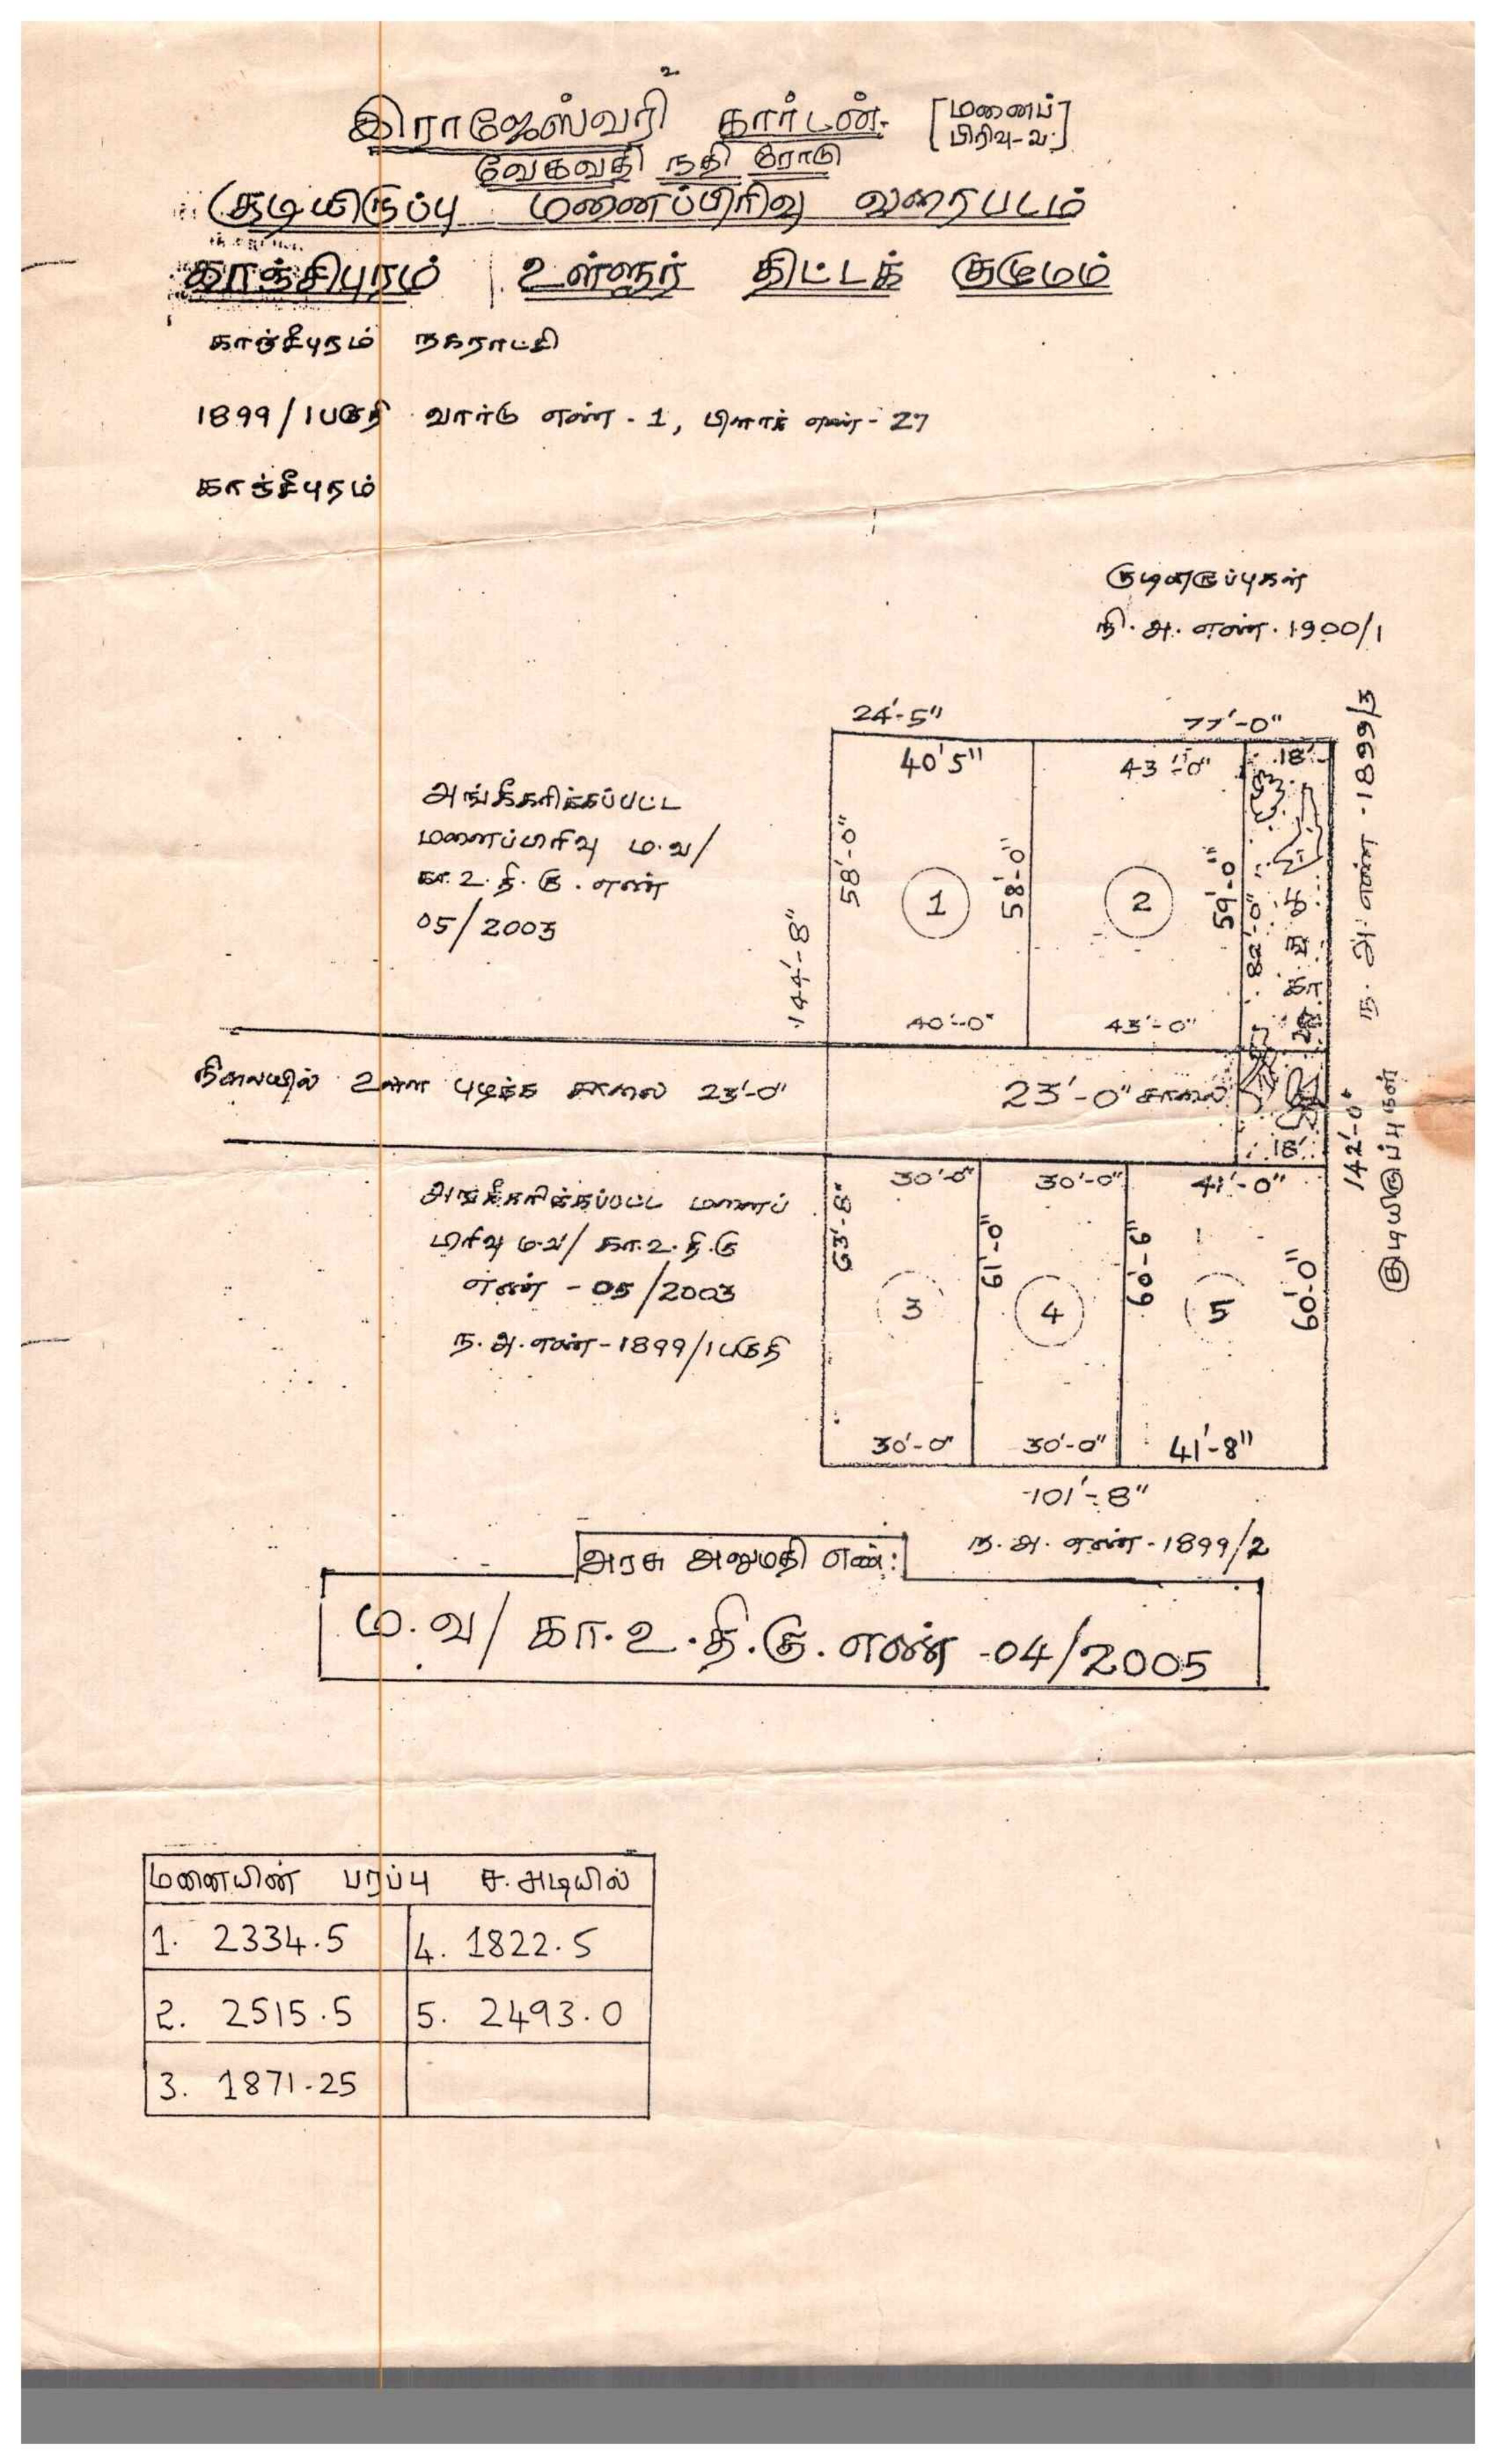 இராஜேஸ்வரி கார்டன். [மனைப் பிரிவு-உ]
வேகவதி நதி ரோடு
குடியிருப்பு மனைப்பிரிவு வரைபடம்
காஞ்சிபுரம் உள்ளூர் திட்டக் குழுமம்
காஞ்சீபுரம் நகராட்சி
1899/1பகுதி வார்டு எண் - 1, பிளாக் எண் - 27
காஞ்சீபுரம்
குடியிருப்புகள்
நி. அ. எண். 1900/1
24'-5" 77'-0"
40'5" 43'-0" 18'
ந. அ. எண் - 1899/3
அங்கீகரிக்கப்பட்ட
மனைப்பிரிவு ம.வ/
கா.உ.தி.கு. எண்
05/2003
58'-0" 1 58'-0" 2 59'-0" 82'-0"
144'-8"
40'-0" 43'-0"
நிலையில் உள்ள புழக்க சாலை 23'-0" 23'-0" சாலை
18'
142'-0"
குடியிருப்புகள்
30'-0" 30'-0" 41'-0"
அங்கீகரிக்கப்பட்ட மனைப்
பிரிவு ம.வ/ கா.உ.தி.கு
எண் - 05/2003
ந.அ.எண் - 1899/1பகுதி
63'-8" 3 61'-0" 4 60'-6" 5 60'-0"
30'-0" 30'-0" 41'-8"
101'-8"
ந.அ. எண் - 1899/2
அரசு அனுமதி எண்:
ம.வ/ கா.உ.தி.கு.எண் -04/2005
மனையின் பரப்பு ச.அடியில்
1. 2334.5 4. 1822.5
2. 2515.5 5. 2493.0
3. 1871.25